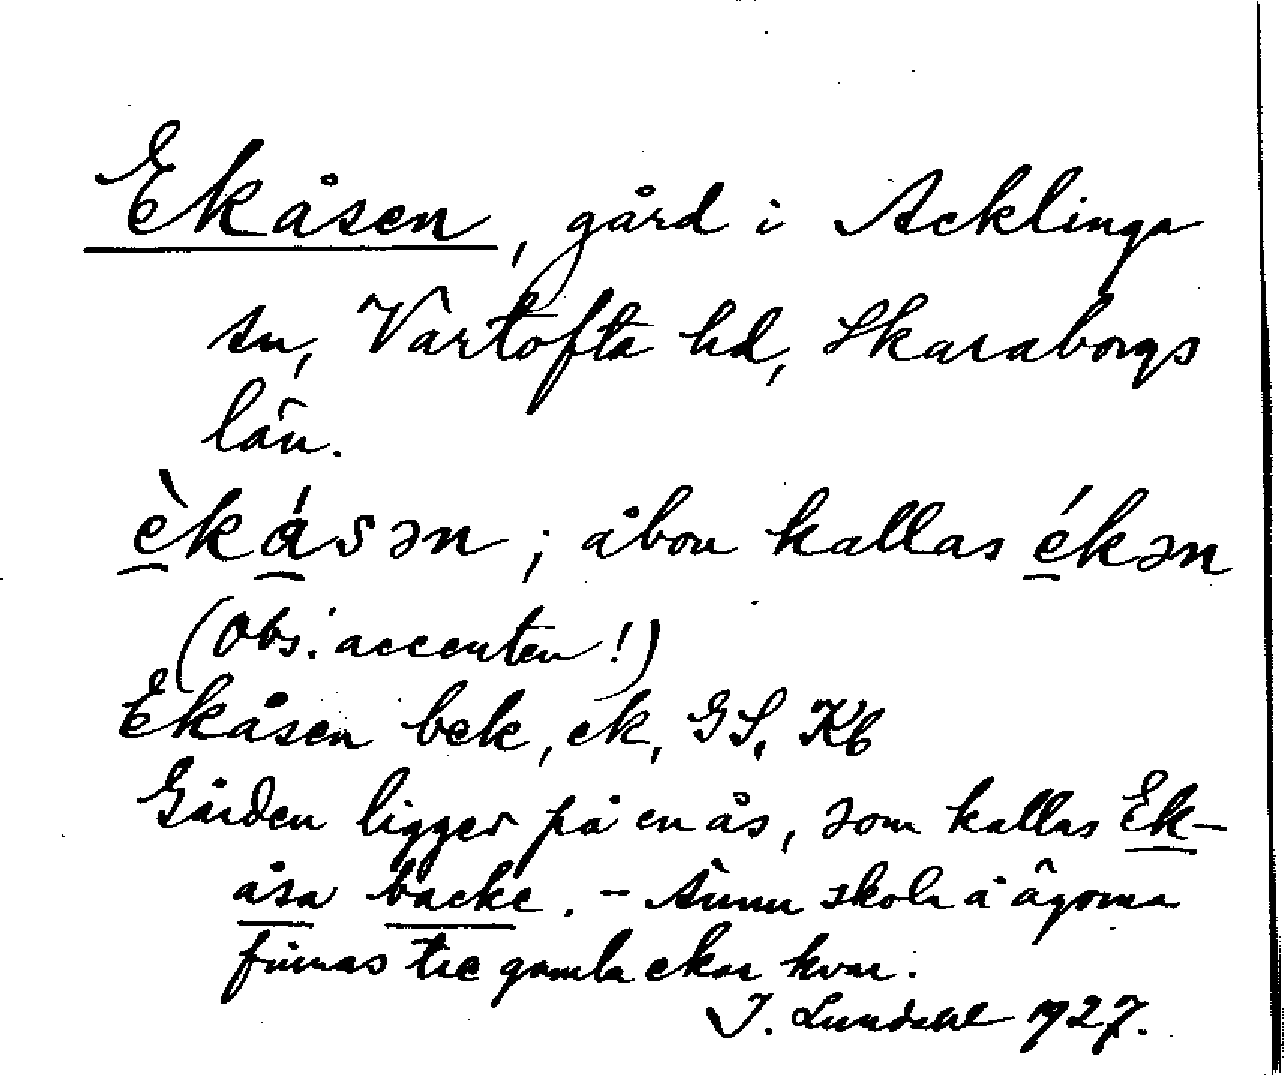 Ekåsen, gård i Acklinga
sn, Vartofta hd, Skaraborgs
län.
èkásən; åbon kallas ékən
(Obs. accenten!)
Ekåsen bek, ek, GS, Kb
Gården ligger på en ås, som kallas Ek-
åsa backe. – Ännu skola å ägorna
finnas tre gamla ekar kvar.
I. Lundahl 1927.